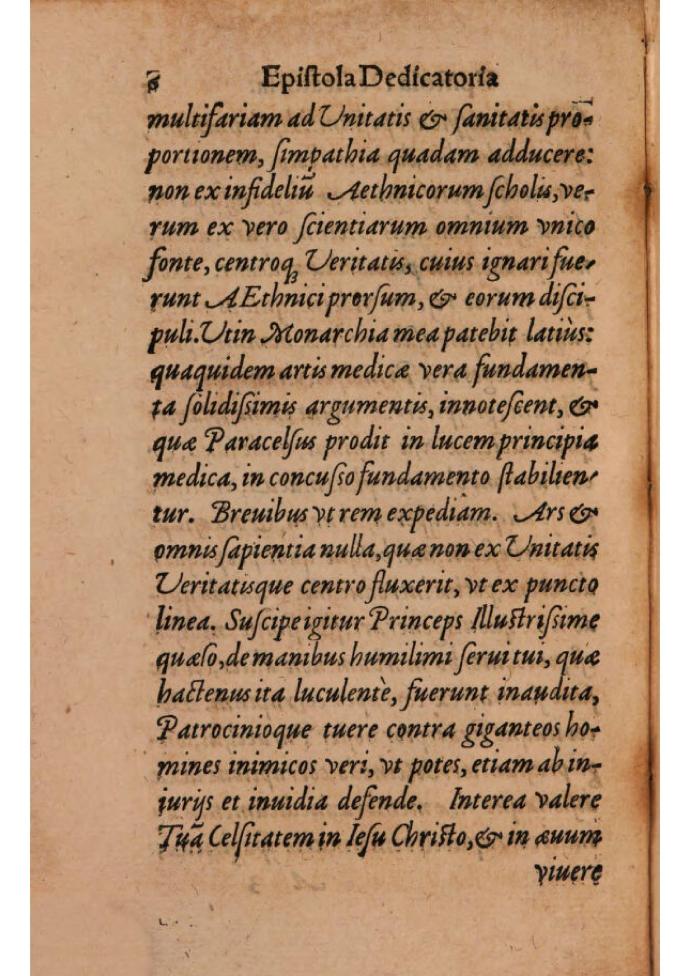 8 Epiſtola Dedicatoria
multifariam ad Vnitatis & ſanitatis pro-
portionem, ſimpathia quadam adducere:
non ex infideliũ Aethnicorum ſcholis, ve-
rum ex vero ſcientiarum omnium vnico
fonte, centroq; Veritatis, cuius ignari fue-
runt AEthnici prorſum, & eorum diſci-
puli. Vt in Monarchia mea patebit latiùs:
quaquidem artis medicæ vera fundamen-
ta ſolidiſsimis argumentis, innoteſcent, &
quæ Paracelſus prodit in lucem principia
medica, in concuſſo fundamento ſtabilien-
tur. Breuibus vt rem expediam. Ars &
omnis ſapientia nulla, quæ non ex Vnitatis
Veritatisque centro fluxerit, vt ex puncto
linea. Suſcipe igitur Princeps Illuſtriſsime
quæſo, de manibus humilimi ſerui tui, quæ
hactenus ita luculentè, fuerunt inaudita,
Patrocinioque tuere contra giganteos ho-
mines inimicos veri, vt potes, etiam ab in-
iurijs et inuidia defende. Interea valere
Tuã Celſitatem in Ieſu Chriſto, & in æuum
viuere